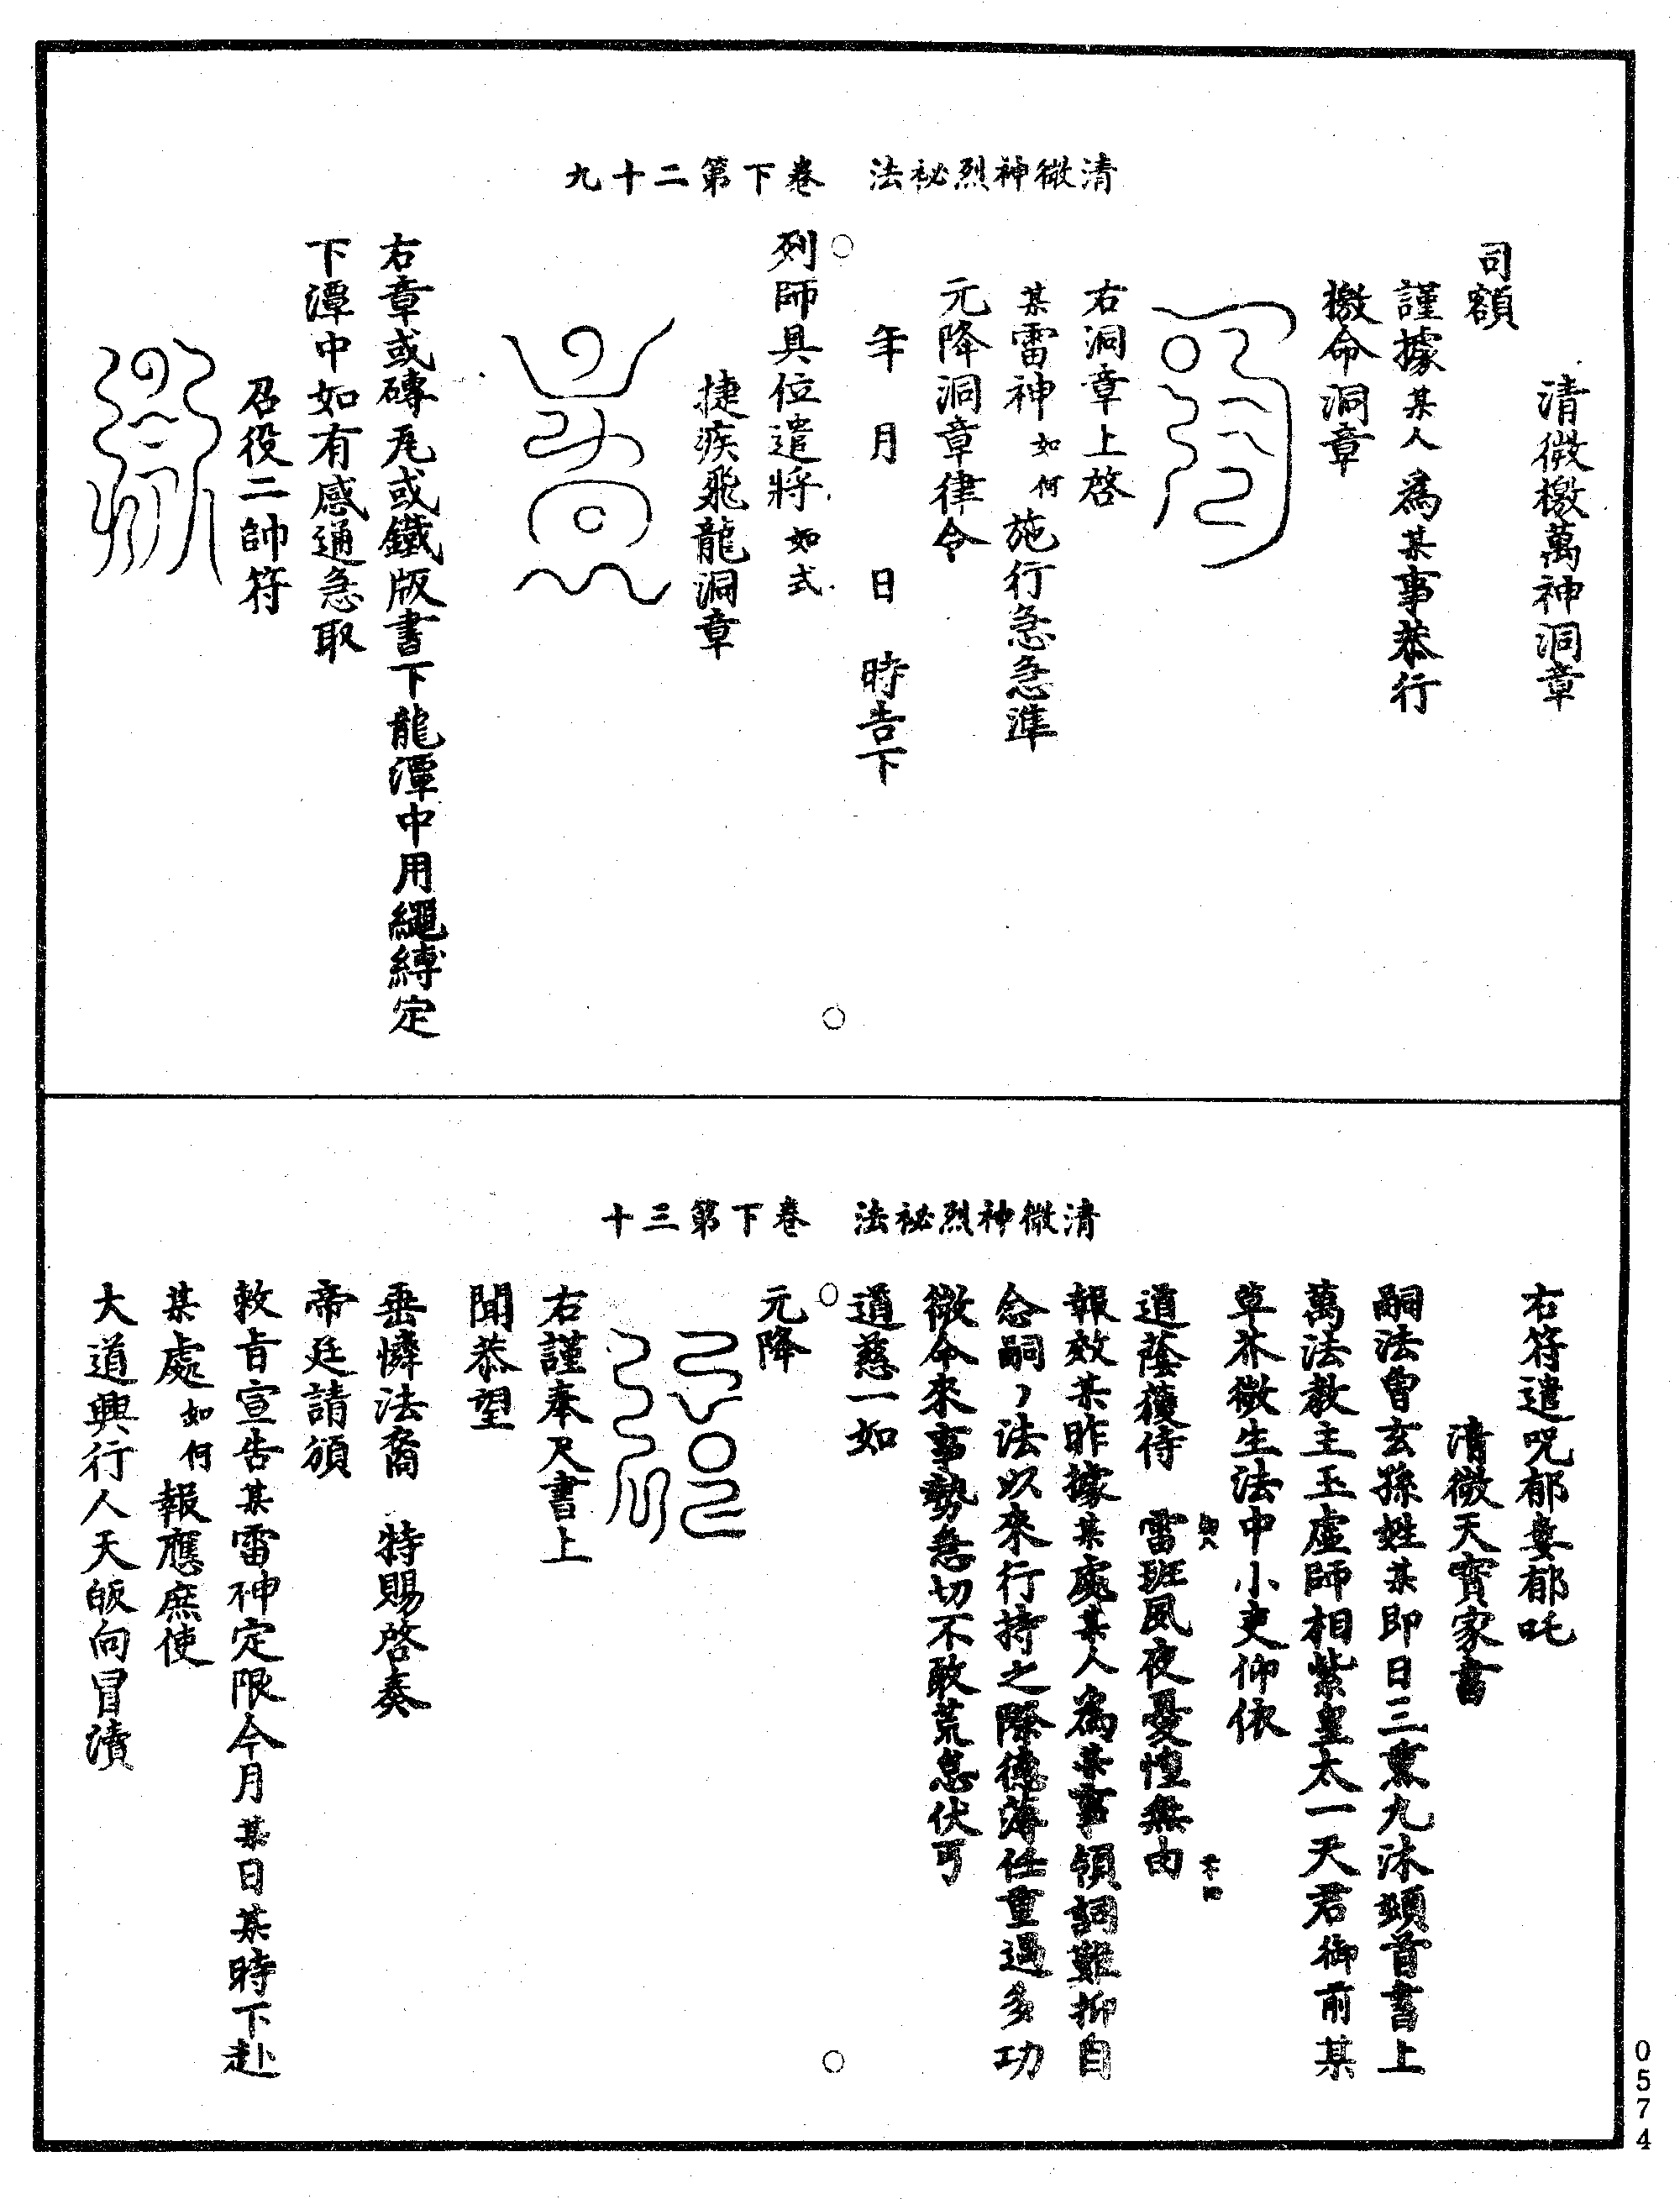 清微神烈祕法　卷下第二十九
清微檄萬神洞章
司額
謹據某人為某事恭行
檄命洞章
右洞章上啓
某雷神如何施行急急準
元降洞章律令
年　月　日　時告下
列師具位遣將如式
捷疾飛龍洞章
右章或磚瓦或鐵版書下龍潭中用繩縛定
下潭中如有感通急取
召役二帥符
清微神烈祕法　卷下第三十
右符遣呪郁婁郁吒
清微天寳家書
嗣法曾玄孫姓某即日三熏九沐頫首書上
萬法教主玉虛師相紫皇太一天君御前某
草芥微生法中小吏仰依
道蔭獲侍　雷班夙夜憂惶無由
報效某昨據某處某人為某事領詞難抑自
念嗣法以來行持之際德薄任重過多功
微今來事勢急切不敢荒怠伏丐
道慈一如
元降
右謹奉尺書上
聞恭望
垂憐法裔　特賜啓奏
帝廷請頒
敕旨宣告某雷神定限今月某日某時下赴
某處如何報應庶使
大道興行人天皈向冒瀆
0574